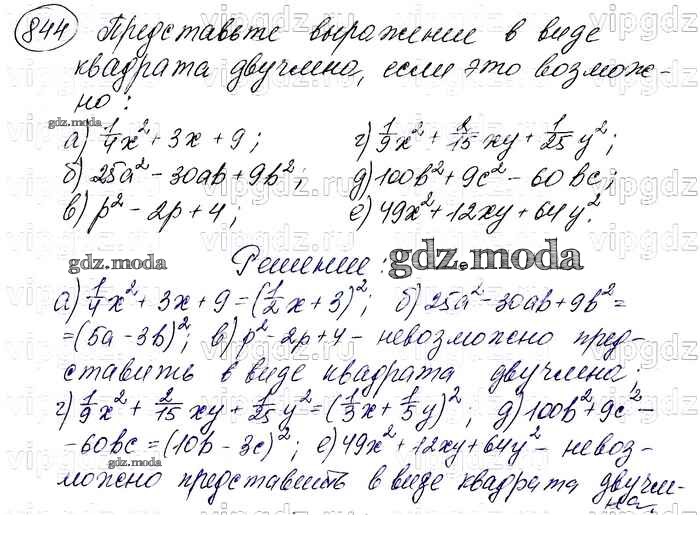 844 Представьте выражение в виде
квадрата двучлена, если это возмож-
но:
gdz.moda
а) 1/4x² + 3x + 9; г) 1/9x² + 2/15xy + 1/25y²;
б) 25a² - 30ab + 9b²; д) 100b² + 9c² - 60bc;
в) p² - 2p + 4; е) 49x² + 12xy + 64y².
gdz.moda Решение: gdz.moda
а) 1/4x² + 3x + 9 = (1/2x + 3)²; б) 25a² - 30ab + 9b² =
= (5a - 3b)²; в) p² - 2p + 4 - невозможно пред-
ставить в виде квадрата двучлена;
г) 1/9x² + 2/15xy + 1/25y² = (1/3x + 1/5y)²; д) 100b² + 9c² -
- 60bc = (10b - 3c)²; е) 49x² + 12xy + 64y² - невоз-
gdz.moda
можно представить в виде квадрата двучле-
на.
gdz.moda